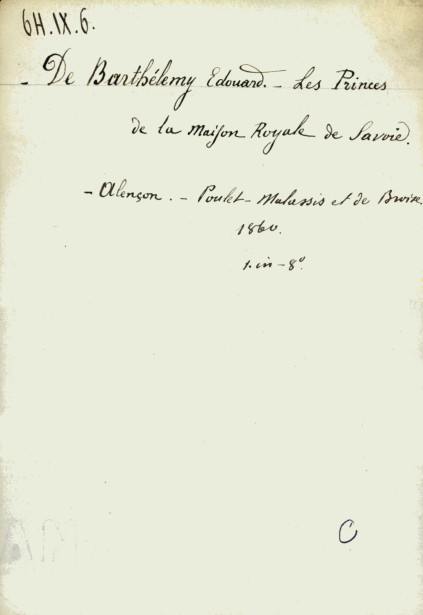 6H.IX.6.
- De Barthélemy Edouard. - Les Princes
de la Maison Royale de Savoie.
- Alençon. - Poulet-Malassis et de Broise.
1860.
1. in-8°.
C